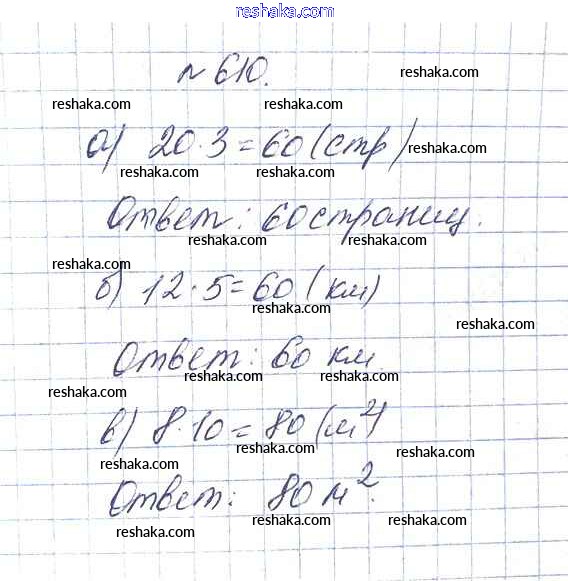 reshaka.com
№ 610.
reshaka.com
reshaka.com reshaka.com
а) 20·3=60 (стр) reshaka.com
reshaka.com reshaka.com
Ответ: 60 страниц.
reshaka.com reshaka.com
reshaka.com
б) 12·5=60 (км)
reshaka.com
reshaka.com
Ответ: 60 км.
reshaka.com reshaka.com
в) 8·10=80 (м²)
reshaka.com reshaka.com
reshaka.com
Ответ: 80 м².
reshaka.com reshaka.com
reshaka.com